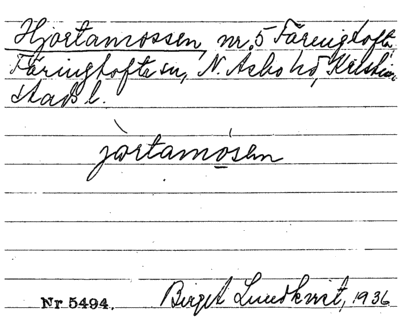 Hjortamossen, nr. 5 Färingtofta,
Färingtofta sn, N. Åsbo hd, Kristian
stads l.
jòrtamósen
Nr 5494. Birgit Lundkvist, 1936